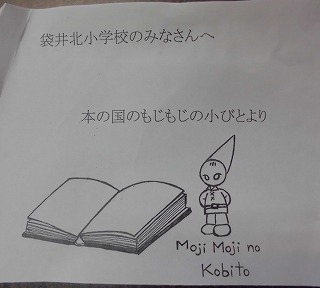 袋井北小学校のみなさんへ
本の国のもじもじの小びとより
Moji Moji no
Kobito